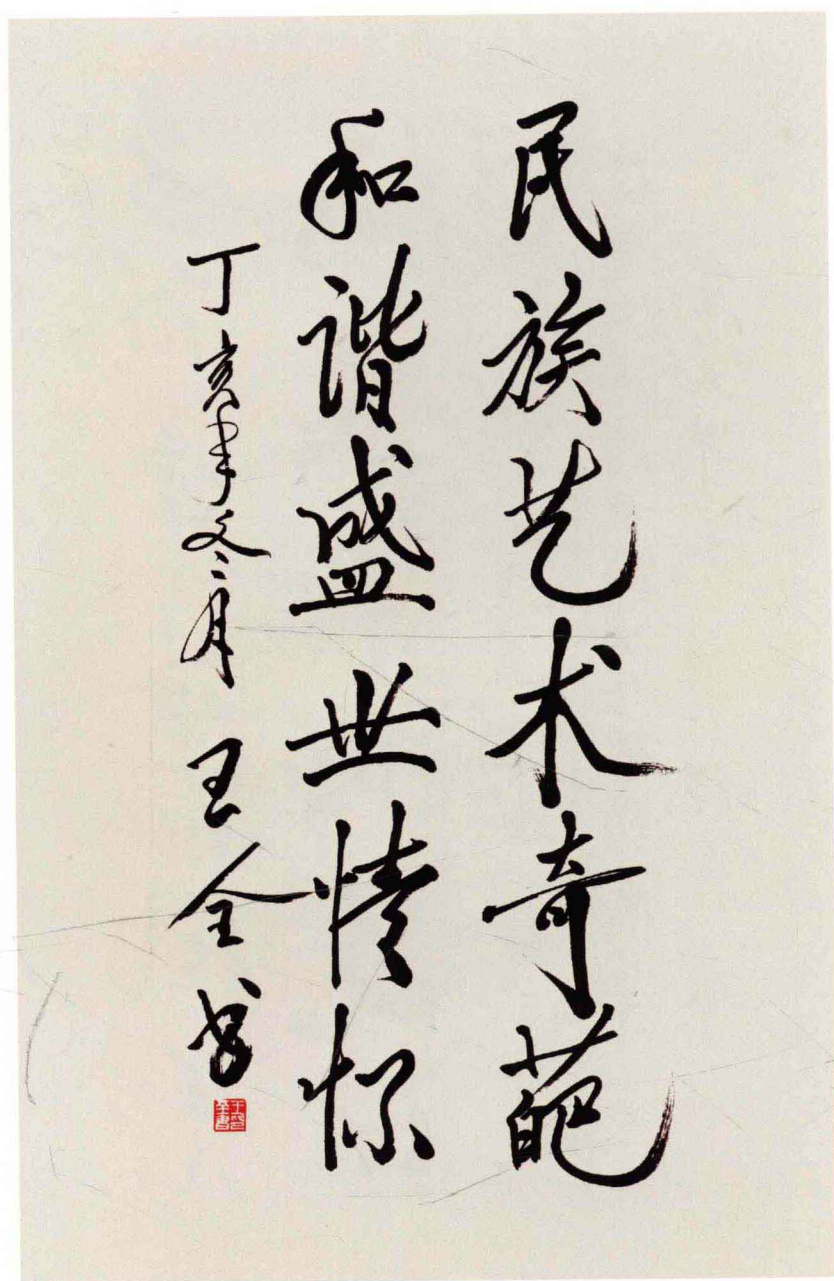 民族艺术奇葩
和谐盛世情怀
丁亥年冬月 王全书